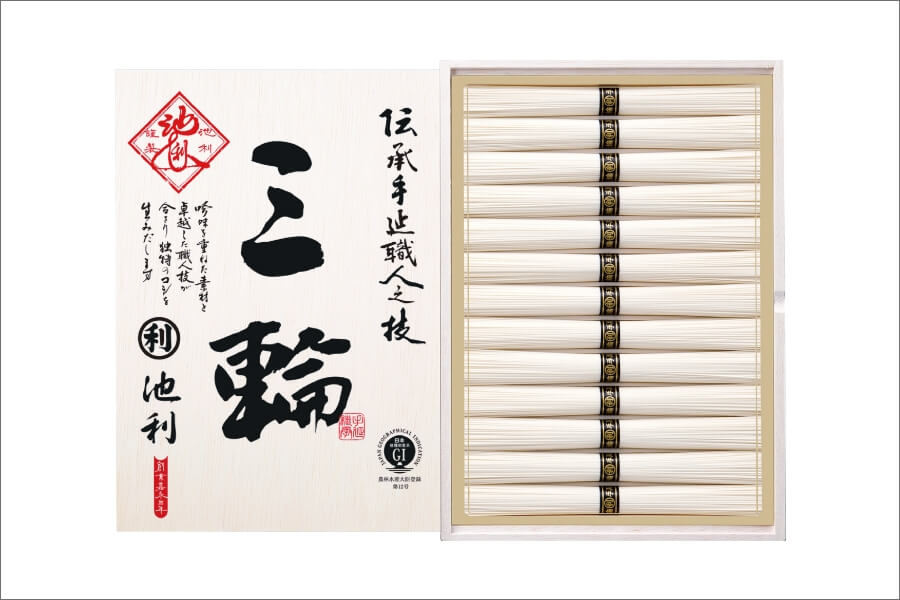 伝承手延職人之技
三輪
池利
謹製
池利
吟味を重ねた素材と
卓越した職人技が
合わり独特のコシを
生みだします
利
池利
創業嘉永三年
JAPAN GEOGRAPHICAL INDICATION
日本
地理的表示
GI
農林水産大臣登録
第12号